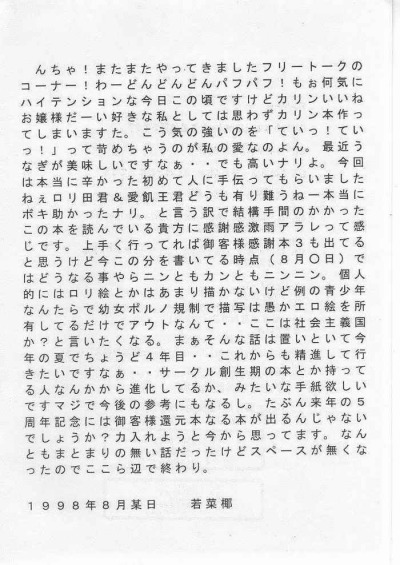 んちゃ！またまたやってきましたフリートークの
コーナー！わーどんどんどんパフパフ！もぉ何気に
ハイテンションな今日この頃ですけどカリンいいね
お嬢様だーい好きな私としては思わずカリン本作っ
てしまいますた。こう気の強いのを「ていっ！てい
っ！」って苛めちゃうのが私の愛なのよん。最近う
なぎが美味しいですなぁ・・でも高いナリよ。今回
は本当に辛かった初めて人に手伝ってもらいました
ねぇロリ田君＆愛飢王君どうも有り難うね一本当に
ボキ助かったナリ。と言う訳で結構手間のかかった
この本を読んでいる貴方に感謝感激雨アラレって感
じです。上手く行ってれば御客様感謝本３も出てる
と思うけど今この分を書いてる時点（８月〇日）で
はどうなる事やらニンともカンともニンニン。個人
的にはロリ絵とかはあまり描かないけど例の青少年
なんたらで幼女ポルノ規制で描写は愚かエロ絵を所
有してるだけでアウトなんて・・ここは社会主義国
か？と言いたくなる。まぁそんな話は置いといて今
年の夏でちょうど４年目・・これからも精進して行
きたいですなぁ・・サークル創生期の本とか持って
る人なんかから進化してるか、みたいな手紙欲しい
ですマジで今後の参考にもなるし。たぶん来年の５
周年記念には御客様還元本なる本が出るんじゃない
でしょうか？力入れようと今から思ってます。なん
ともまとまりの無い話だったけどスペースが無くな
ったのでここら辺で終わり。
１９９８年８月某日　若菜椰